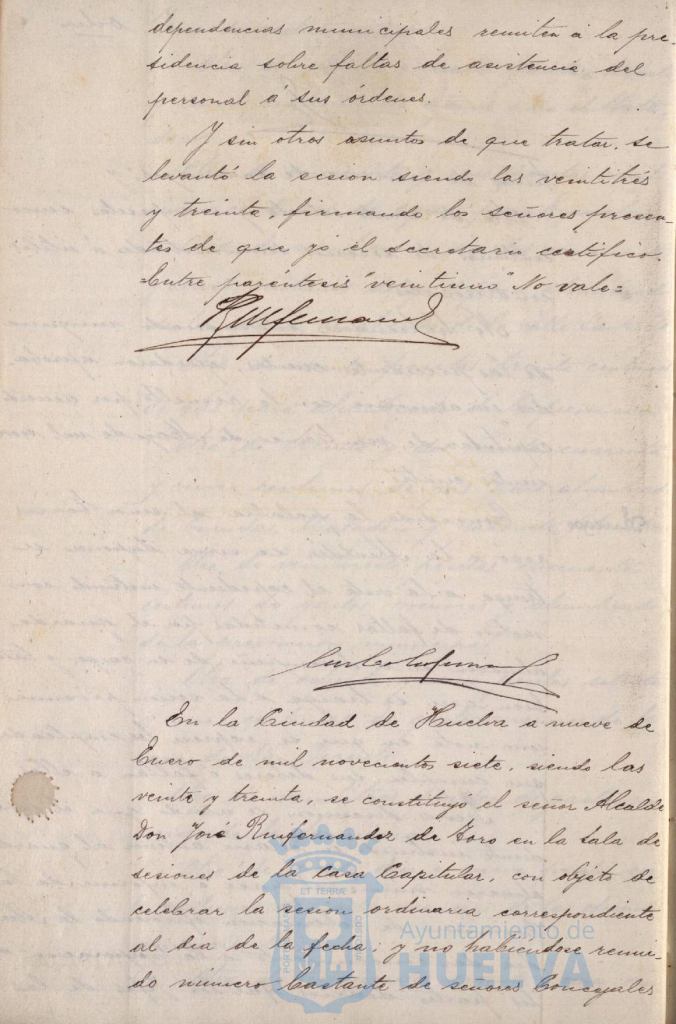 dependencias municipales remiten á la pre-
sidencia sobre faltas de asistencia del
personal á sus órdenes.
Y sin otros asuntos de que tratar, se
levantó la sesion siendo las veintitrés
y treinta, firmando los señores presen-
tes de que yo el secretario certifico.
=Entre paréntesis "veintiuno" No vale=
En la Ciudad de Huelva a nueve de
Enero de mil novecientos siete, siendo las
veinte y treinta, se constituyó el señor Alcalde
Don José Ruifernandez de Toro en la Sala de
sesiones de la Casa Capitular, con objeto de
celebrar la sesion ordinaria correspondiente
al dia de la fecha; y no habiéndose reuni-
do número bastante de señores Concejales
Ayuntamiento de
HUELVA